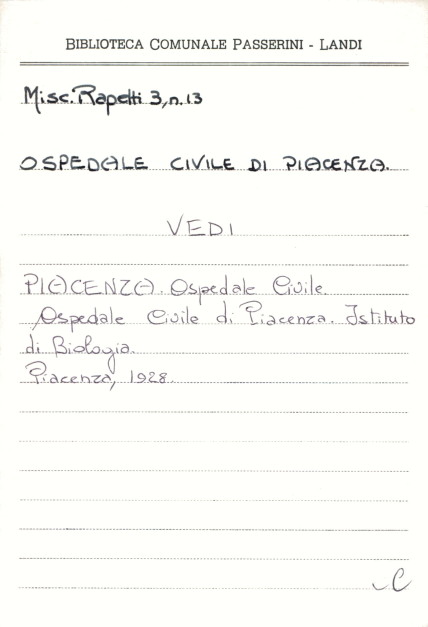 BIBLIOTECA COMUNALE PASSERINI - LANDI
Misc. Rapetti 3, n. 13
OSPEDALE CIVILE DI PIACENZA.
VEDI
PIACENZA. Ospedale Civile.
Ospedale Civile di Piacenza. Istituto
di Biologia.
Piacenza, 1928.
C